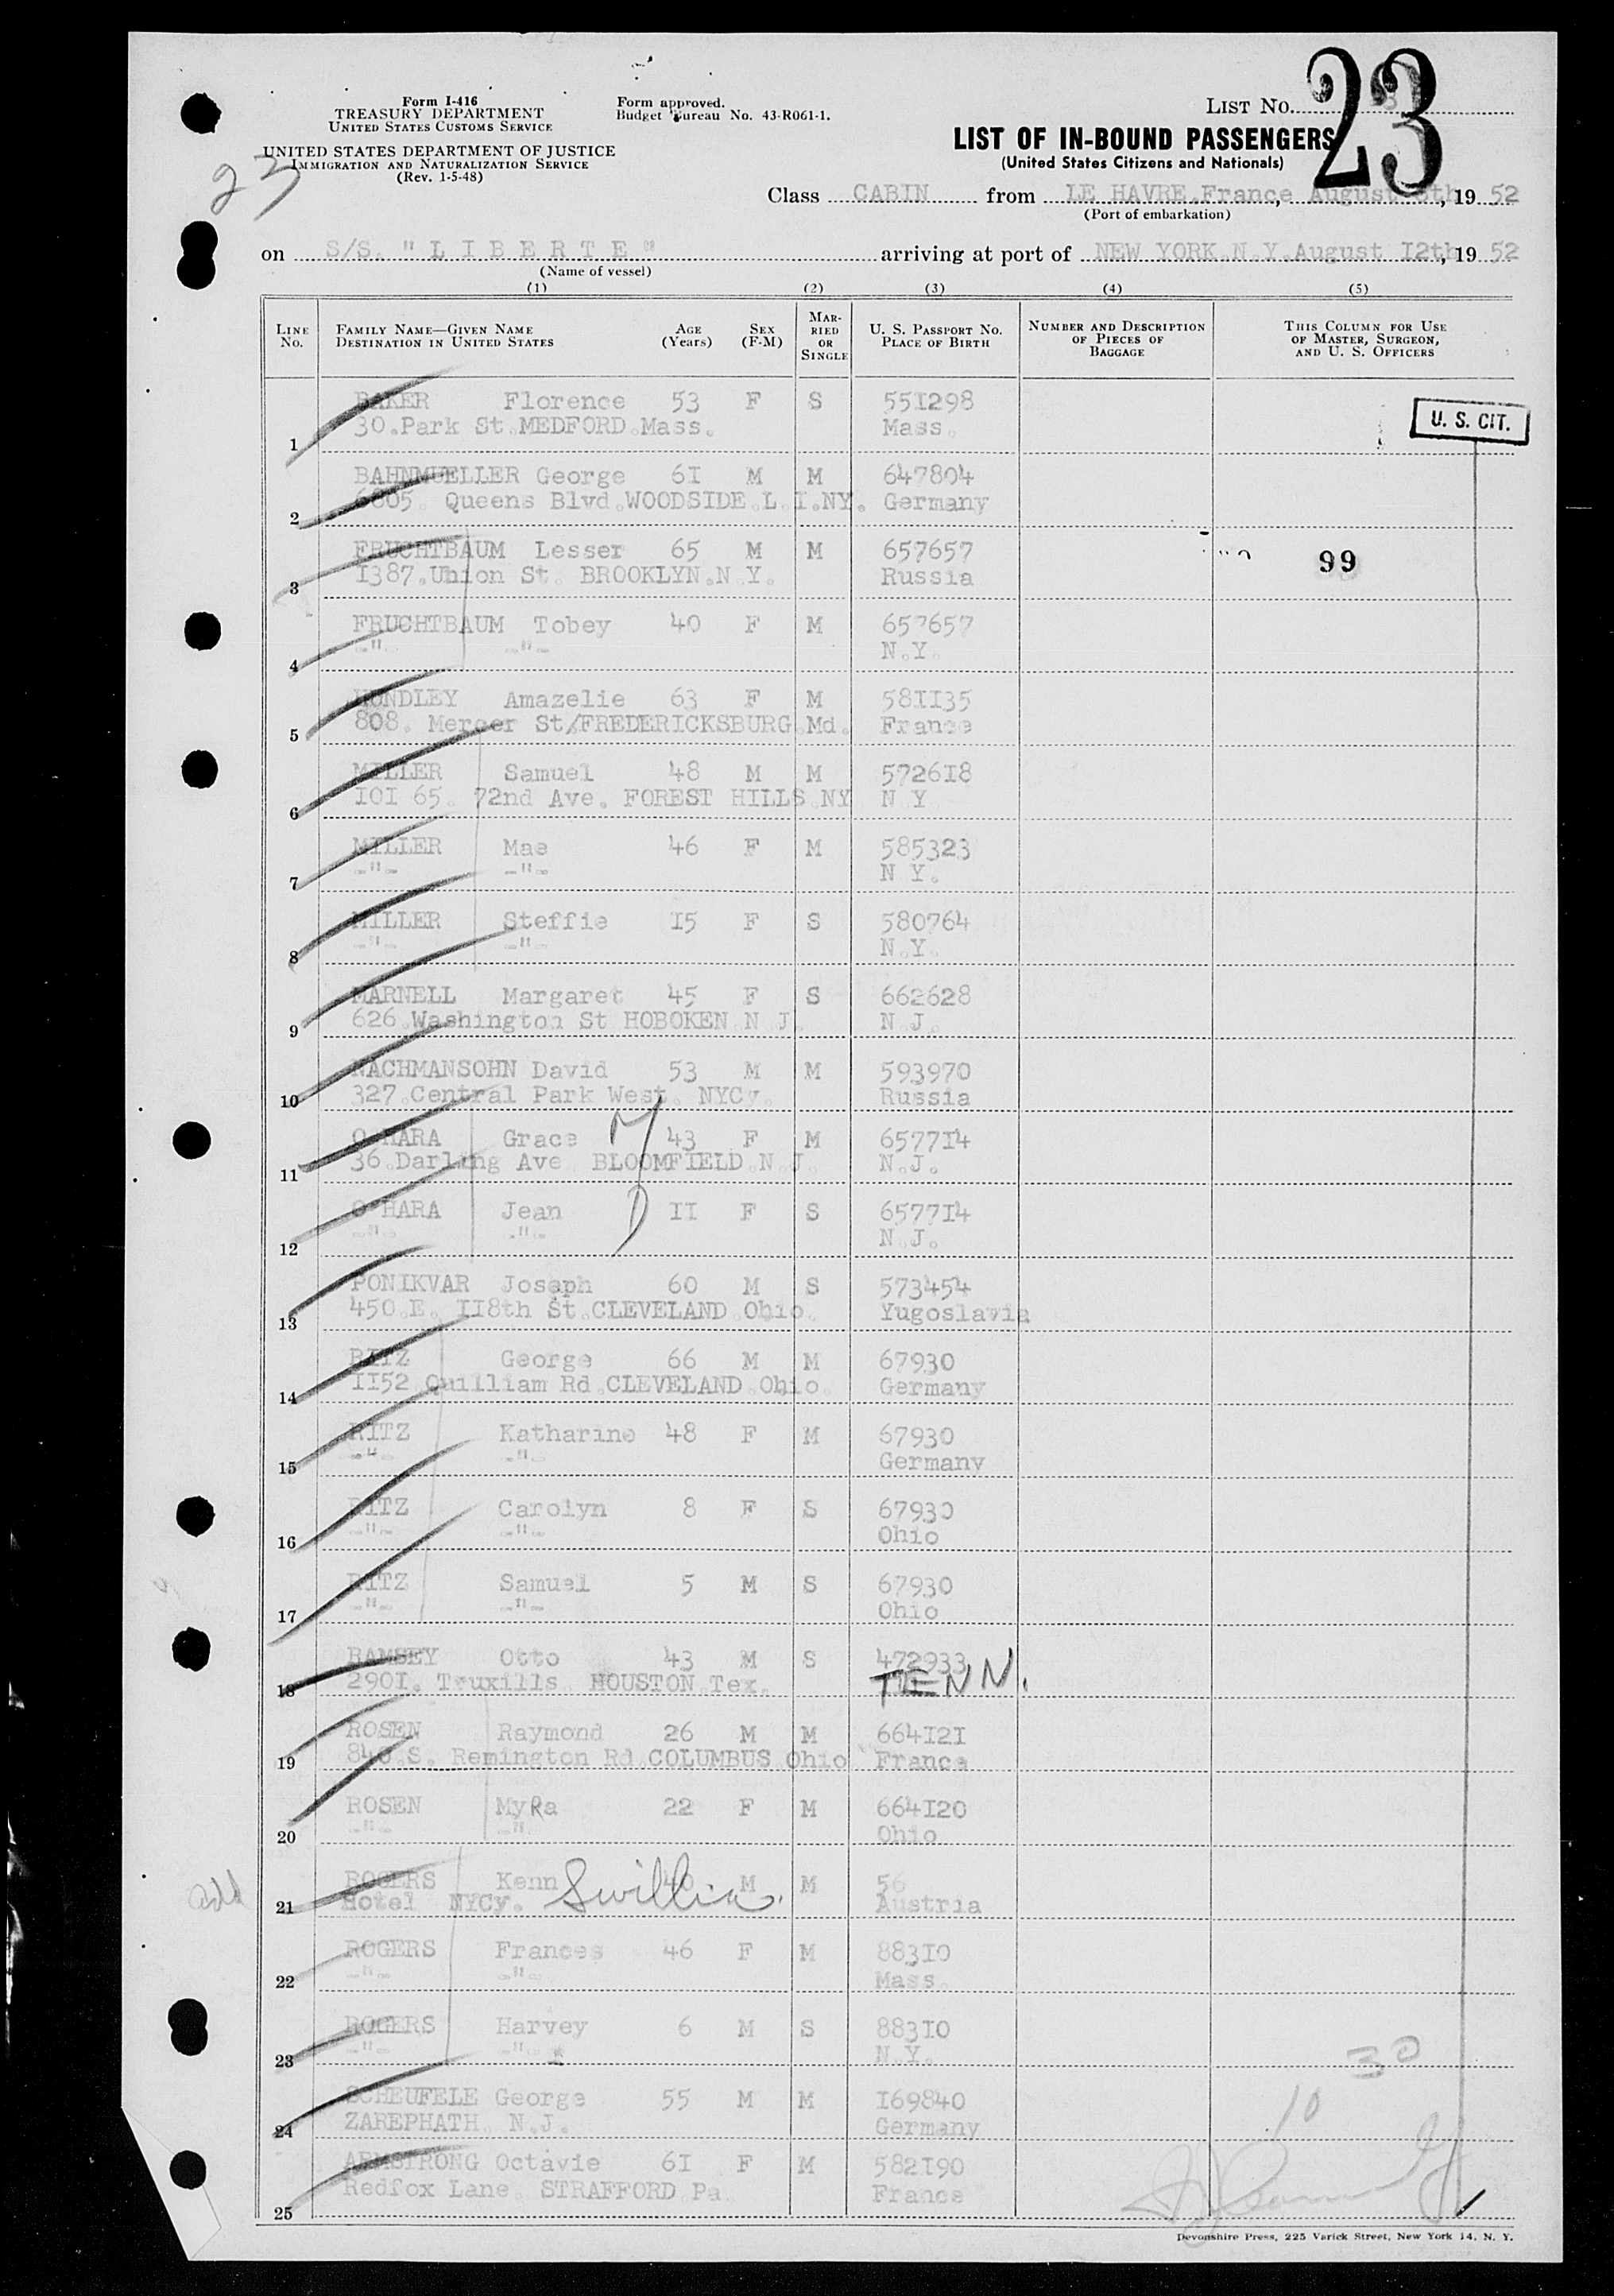 Form I-416
TREASURY DEPARTMENT
UNITED STATES CUSTOMS SERVICE
UNITED STATES DEPARTMENT OF JUSTICE
IMMIGRATION AND NATURALIZATION SERVICE
(Rev. 1-5-48)
Form approved.
Budget Bureau No. 43-R061-1.
LIST NO.
23
23
LIST OF IN-BOUND PASSENGERS
(United States Citizens and Nationals)
Class CABIN from LE HAVRE.France, August 8th, 19 52
(Port of embarkation)
on S/S. "L I B E R T E" arriving at port of NEW YORK.N.Y.August I2th, 19 52
(Name of vessel)
(1) (2) (3) (4) (5)
LINE NO. FAMILY NAME—GIVEN NAME DESTINATION IN UNITED STATES AGE (Years) SEX (F-M) MARRIED OR SINGLE U. S. PASSPORT NO. PLACE OF BIRTH NUMBER AND DESCRIPTION OF PIECES OF BAGGAGE THIS COLUMN FOR USE OF MASTER, SURGEON, AND U. S. OFFICERS
BAKER Florence 53 F S 55I298
1 30.Park St.MEDFORD.Mass. Mass.
U. S. CIT.
BAHNMUELLER George 6I M M 647804
2 6805. Queens Blvd.WOODSIDE.L.I.NY. Germany
FRUCHTBAUM Lesser 65 M M 657657
3 I387.Union St. BROOKLYN.N.Y. Russia
99
FRUCHTBAUM Tobey 40 F M 657657
4 -"- -"- N.Y.
HUNDLEY Amazelie 63 F M 58II35
5 808. Mercer St/FREDERICKSBURG.Md. France
MILLER Samuel 48 M M 5726I8
6 IOI 65. 72nd Ave. FOREST HILLS.NY N Y
MILLER Mae 46 F M 585323
7 -"- -"- N Y.
MILLER Steffie I5 F S 580764
8 -"- -"- N.Y.
MARNELL Margaret 45 F S 662628
9 626.Washington St HOBOKEN N J. N.J.
NACHMANSOHN David 53 M M 593970
10 327.Central Park West. NYCy. Russia
O HARA Grace M 43 F M 6577I4
11 36.Darling Ave BLOOMFIELD.N.J. N.J.
O HARA Jean D II F S 6577I4
12 -"- -"- N.J.
PONIKVAR Joseph 60 M S 573454
13 450.E. II8th St.CLEVELAND Ohio. Yugoslavia
RITZ George 66 M M 67930
14 II52 Quilliam Rd.CLEVELAND.Ohio. Germany
RITZ Katharine 48 F M 67930
15 -"- -"- Germany
RITZ Carolyn 8 F S 67930
16 -"- -"- Ohio
RITZ Samuel 5 M S 67930
17 -"- -"- Ohio
RAMSEY Otto 43 M S 472933
18 290I. Truxills HOUSTON Tex. TENN.
ROSEN Raymond 26 M M 664I2I
19 840.S. Remington Rd.COLUMBUS Ohio France
ROSEN MyRa 22 F M 664I20
20 -"- -"- Ohio
add
ROGERS Kenn 40 M M 56
21 Hotel NYCy. Austria
ROGERS Frances 46 F M 883I0
22 -"- -"- Mass.
ROGERS Harvey 6 M S 883I0
23 -"- -"- N.Y.
30
SCHEUFELE George 55 M M I69840
24 ZAREPHATH. N.J. Germany
10
ARMSTRONG Octavie 6I F M 582I90
25 Redfox Lane. STRAFFORD Pa. France
Devonshire Press, 225 Varick Street, New York 14, N. Y.